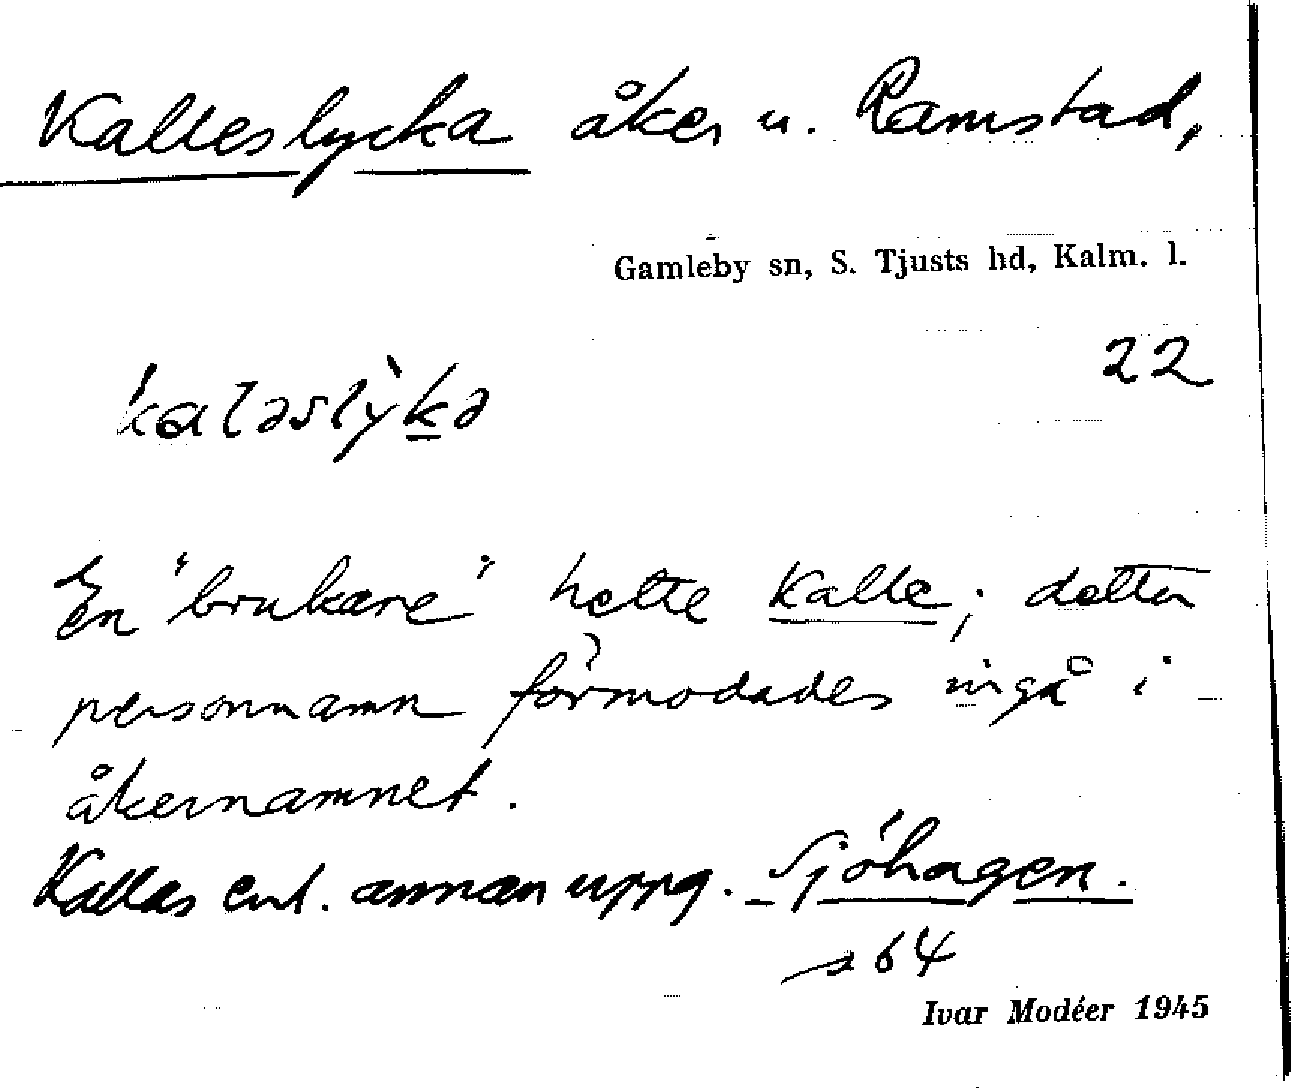 Kalleslycka åker u. Ramstad,
Gamleby sn, S. Tjusts hd, Kalm. l.
22
En "brukare" hette Kalle; detta
personnamn förmodades ingå i
åkernamnet.
Kallas enl. annan uppg. Sjöhagen.
64
Ivar Modéer 1945